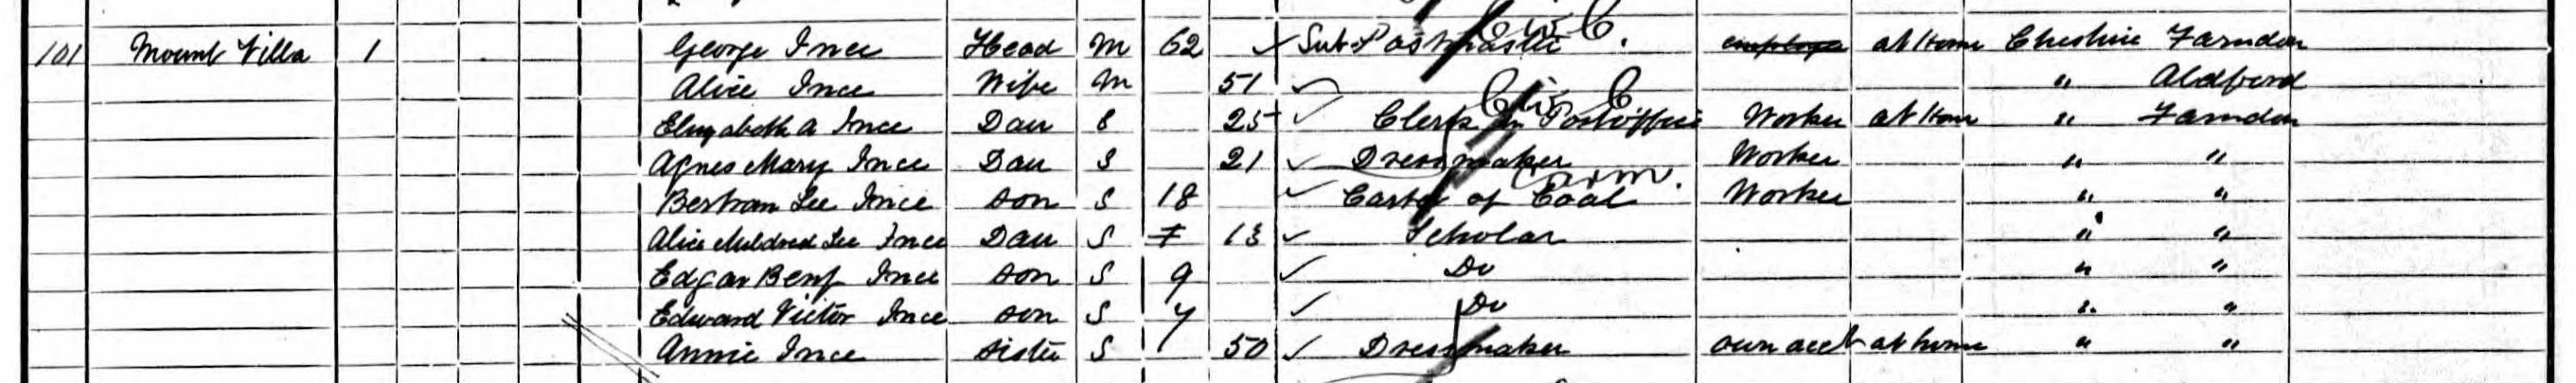 101 Mount Villa 1 George Ince Head M 62 Sub-Postmaster Civ C. employe at Home Cheshire Farndon
Alice Ince Wife M 51 " Aldford
Elizabeth A Ince Dau S 25 Clerk in Post Office Civ C Worker at Home " Farndon
Agnes Mary Ince Dau S 21 Dressmaker Worker " "
Bertram Lee Ince Son S 18 Carter of Coal Worker " "
Alice Mildred Lee Ince Dau S 13 Scholar " "
Edgar Benj Ince Son S 9 Do " "
Edward Victor Ince Son S 7 Do " "
Annie Ince Sister S 50 Dressmaker own acct at home " "